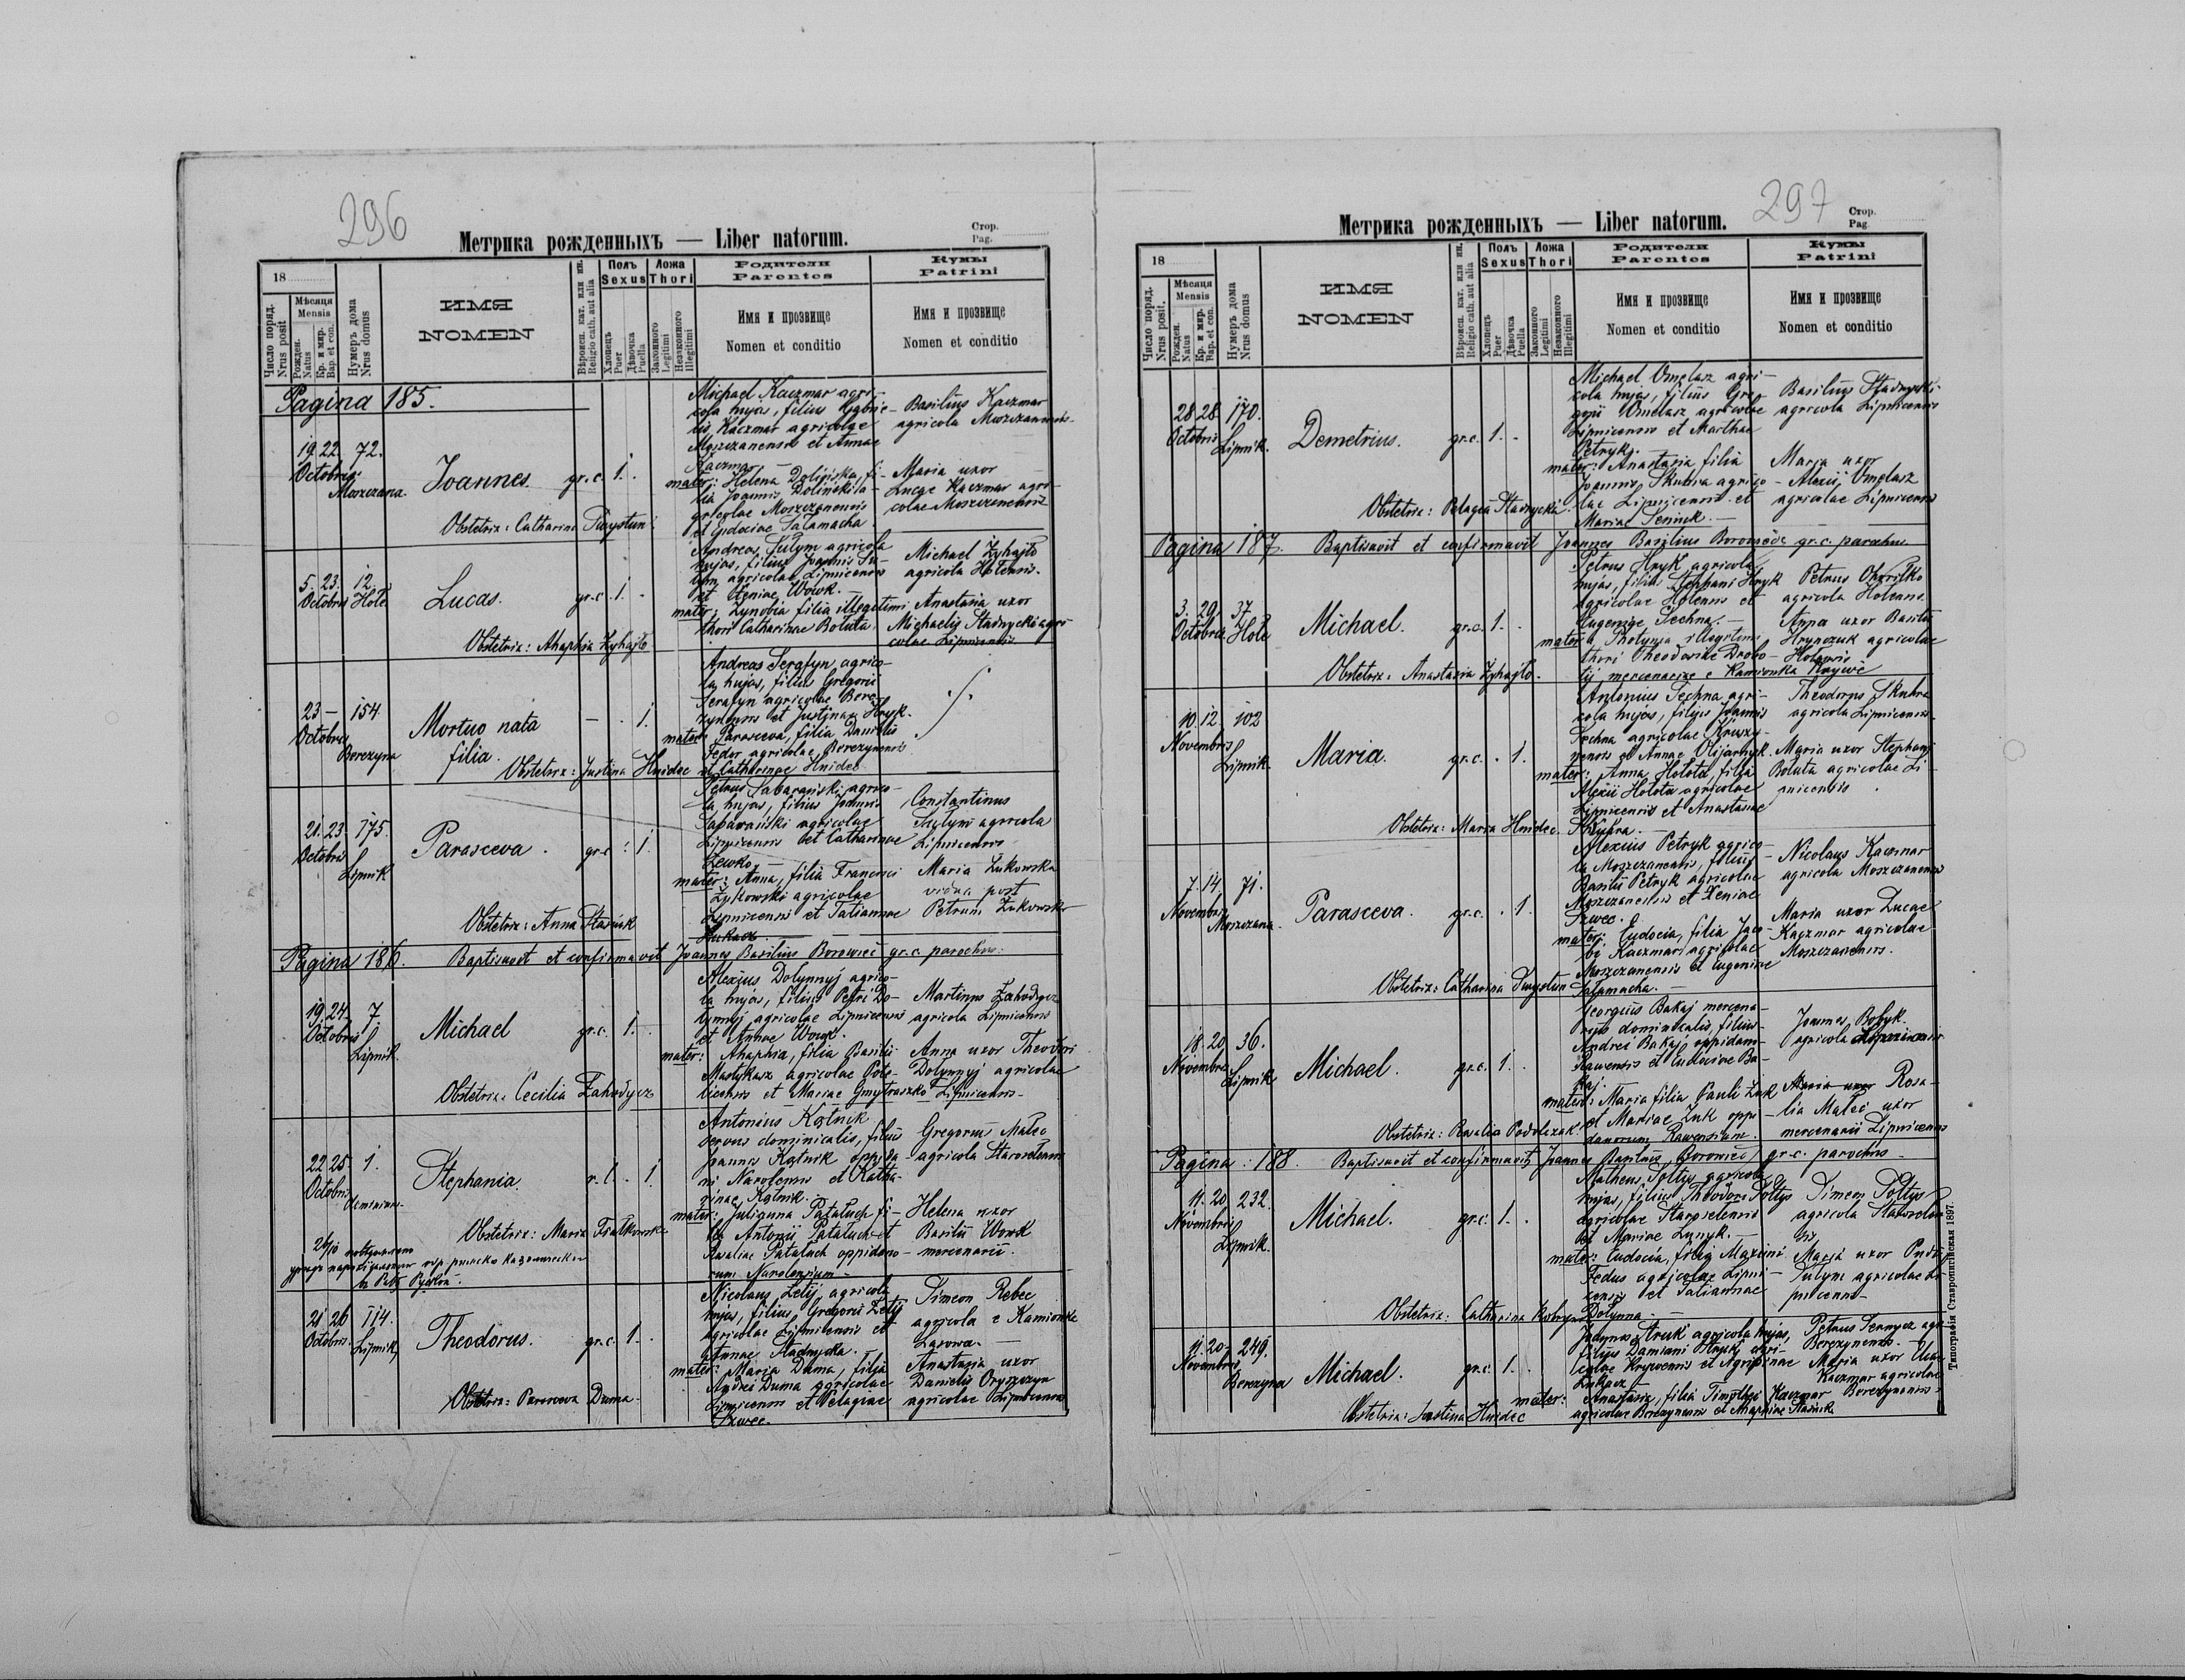 296
Метрика рожденныхъ — Liber natorum.
Стор.
Pag.
18
Число поряд.
Nrus posit
Мѣсяця
Mensis
Рожден.
Natus
Кр. и мир.
Bap. et con.
Нумеръ дома
Nrus domus
ИМЯ
NOMEN
Вѣроисп. кат. или ин.
Religio cath. aut alia
Полъ
Sexus
Хлопецъ
Puer
Дѣвочка
Puella
Ложа
Thori
Законного
Legitimi
Незаконного
Illegitimi
Родители
Parentes
Имя и прозвище
Nomen et conditio
Кумы
Patrini
Имя и прозвище
Nomen et conditio
Pagina 185.
19. 22. 72.
Octobris
Moszczana.
Joannes
gr. c. 1.
Michael Kaczmar agri-
cola hujas, filius Gabrie-
lis Kaczmar agricolae
Moszczanensis et Annae
Kaczmar —
mater: Helena Dolińska, fi-
lia Joannis Doliński a-
gricolae Moszczanensis
et Eudociae Salamacha.
Basilius Kaczmar
agricola Moszczanensis
Maria uxor
Lucae Kaczmar agri-
colae Moszczanensis
Obstetrix: Catharina
5. 23. 12.
Octobris Hole
Lucas.
gr. c. 1.
Andreas Sulym agricola
hujas, filius Joannis Su-
lym agricolae Lipnicensis
et Xeniae Wowk. —
mater: Zynobia filia illegitimi
thori Catharinae Boluta.
Michael Zyhajlo
agricola Holensis.
Anastasia uxor
Michaelis Stadnycki agri-
colae Lipnicensis
Obstetrix: Ahaphia Zyhajlo
23 — 154
Octobris
Berezyna
Mortuo nata
filia.
— 1.
Andreas Serafyn agrico-
la hujas, filius Gregorii
Serafyn agricolae Bere-
zynensis et Justinae Hryk.
mater: Parasceva, filia Danielis
Fedor agricolae Berezynensis
et Catharinae Hnidec
Obstetrix: Justina Hnidec
21. 23. 175.
Octobris
Lipnik
Parasceva.
gr. c. 1.
Petrus Sabarański agrico-
la hujas, filius Joannis
Sabarański agricolae
Lipnicensis et Catharinae
Lewko. —
mater: Anna, filia Francisci
Żukowski agricolae
Lipnicensis et Tatiannae
Constantinus
Sulym agricola
Lipnicensis
Maria Żukowska
vidua post
Petrum Żukowski
Obstetrix: Anna Stasiuk
Pagina 186. Baptisavit et confirmavit Joannes Basilius Borowiec gr. c. parochus.
19. 24. 7
Octobris
Lipnik
Michael
gr. c. 1.
Alexius Dolynnyj agrico-
la hujas, filius Petri Do-
lynnyj agricolae Lipnicensis
et Annae Wowk.
mater: Ahaphia, filia Basilii
Martykasz agricolae
et Mariae Gmytraszko
Martinus Zahodycz
agricola Lipnicensis
Anna uxor Theodori
Dolynnyj agricolae
Lipnicensis —
Obstetrix: Cecilia Zahodycz
22. 25. 1.
Octobris
Stephania.
r. l. 1
Antonius Kotnik
servus dominicalis, filius
Joannis Kotnik oppida-
ni Narolensis et Katha-
rinae Kotnik.
mater: Julianna Pataluch fi-
lia Antonii Pataluch et
Rosaliae Pataluch oppidano-
rum Narolensium —
Gregorius Malec
agricola
Helena uxor
Basilii Wowk
mercenarii.
Obstetrix: Maria Fialkowska
21 26 114.
Octobris
Lipnik
Theodorus.
gr. c. 1.
Nicolaus Letij agricola
hujas, filius Gregorii Letij
agricolae Lipnicensis et
Annae Stadnycka. —
mater: Maria Duma, filia
Andrei Duma agricolae
Lipnicensis et Pelagiae
Szwec.
Simeon Rebec
agricola e Kamionka
Anastasia uxor
Danielis Oryszczyn
agricolae Lipnicensis
Obstetrix: Parasceva Duma
297
Метрика рожденныхъ — Liber natorum.
Стор.
Pag.
18
Число поряд.
Nrus posit.
Мѣсяця
Mensis
Рожден.
Natus
Кр. и мир.
Bap. et con.
Нумеръ дома
Nrus domus
ИМЯ
NOMEN
Вѣроисп. кат. или ин.
Religio cath. aut alia
Полъ
Sexus
Хлопецъ
Puer
Дѣвочка
Puella
Ложа
Thori
Законного
Legitimi
Незаконного
Illegitimi
Родители
Parentes
Имя и прозвище
Nomen et conditio
Кумы
Patrini
Имя и прозвище
Nomen et conditio
28 28 170.
Octobris
Lipnik.
Demetrius.
gr. c. 1.
Michael Omelasz agri-
cola hujas, filius Gre-
gorii Omelasz agricolae
Lipnicensis et Marthae
Petryk.
mater: Anastasia filia
Joannis Skubra agrico-
lae Lipnicensis et
Mariae Seniuk. —
Basilius Stadnycki
agricola Lipnicensis
Maria uxor
Alexii Omelasz
agricolae Lipnicensis
Obstetrix: Pelagia Stadnycka
Pagina 187. Baptisavit et confirmavit Joannes Basilius Borowiec gr. c. parochus
3. 29. 37
Octobris Hole
Michael.
gr. c. 1.
Petrus Hryk agricola
hujas, filius Stephani Hryk
agricolae Holensis et
Eugeniae Techna. —
mater: Photynia illegitimi
thori Theodosiae Drobo-
tij mercenariae e Kamionka
Petrus
agricola Holensis.
Anna uxor Basilii
Hrynczuk agricolae
Holensis
Obstetrix: Anastasia Zyhajlo.
10. 12. 102
Novembris
Lipnik.
Maria.
gr. c. 1.
Antonius Techna agri-
cola hujas, filius Joannis
Techna agricolae
et Annae Olijarnyk.
mater: Anna Holota, filia
Alexii Holota agricolae
Lipnicensis et Anastasiae
Skubra. —
Theodorus Skubra
agricola Lipnicensis
Maria uxor Stephani
Boluta agricolae Li-
pnicensis.
Obstetrix: Maria Hnidec.
7. 14. 71.
Novembris
Moszczana.
Parasceva.
gr. c. 1.
Alexius Petryk agrico-
la Moszczanensis, filius
Basilii Petryk agricolae
Moszczanensis et Xeniae
Szwec.
mater: Eudocia, filia Jaco-
bi Kaczmar agricolae
Moszczanensis et Eugeniae
Salamacha. —
Nicolaus Kaczmar
agricola Moszczanensis
Maria uxor Lucae
Kaczmar agricolae
Moszczanensis.
Obstetrix: Catharina
18. 20. 36.
Novembris
Lipnik
Michael.
gr. c. 1.
Georgius Bakaj mercena-
rius dominicalis, filius
Andrei Bakaj oppidani
Rawensis et Eudociae Ba-
kaj.
mater: Maria filia Pauli Żuk
et Mariae Żuk oppi-
danorum Rawensium.
Joannes Bobyk
agricola
Maria uxor Rosa-
lia Malec uxor
mercenarii Lipnicensis
Obstetrix: Rosalia Podolczak
Pagina: 188. Baptisavit et confirmavit Joannes Basilius Borowiec gr. c. parochus —
11. 20. 232.
Novembris
Lipnik.
Michael.
gr. c. 1.
Matheus Soltys agricola
hujas, filius Theodori Soltys
agricolae
et Mariae Lunyk. —
mater: Eudocia, filia Maximi
Fedus agricolae Lipni-
censis et Tatiannae
Dolynna. —
Simeon Soltys
agricola
Maria uxor
Sulym agricolae Li-
pnicensis —
Obstetrix: Catharina
11. 20. 249.
Novembris
Berezyna
Michael.
gr. c. 1.
agricola hujas,
filius Damiani agri-
colae et Agripinae
Lukacz
mater: Anastasia, filia Timothei Kaczmar
agricolae Berezynensis et Ahaphiae Stasiuk
Petrus agri-
Berezynensis. —
Maria uxor
Kaczmar agricolae
Berezynensis
Obstetrix: Justina Hnidec
Типографія Ставропигійская 1897.